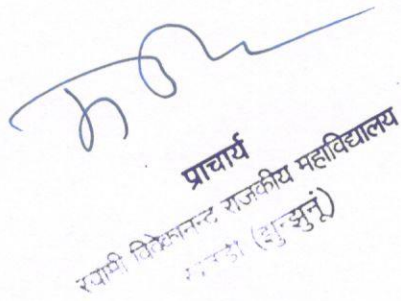 प्राचार्य
स्वामी विवेकानन्द राजकीय महाविद्यालय
(झुन्झुनूं)